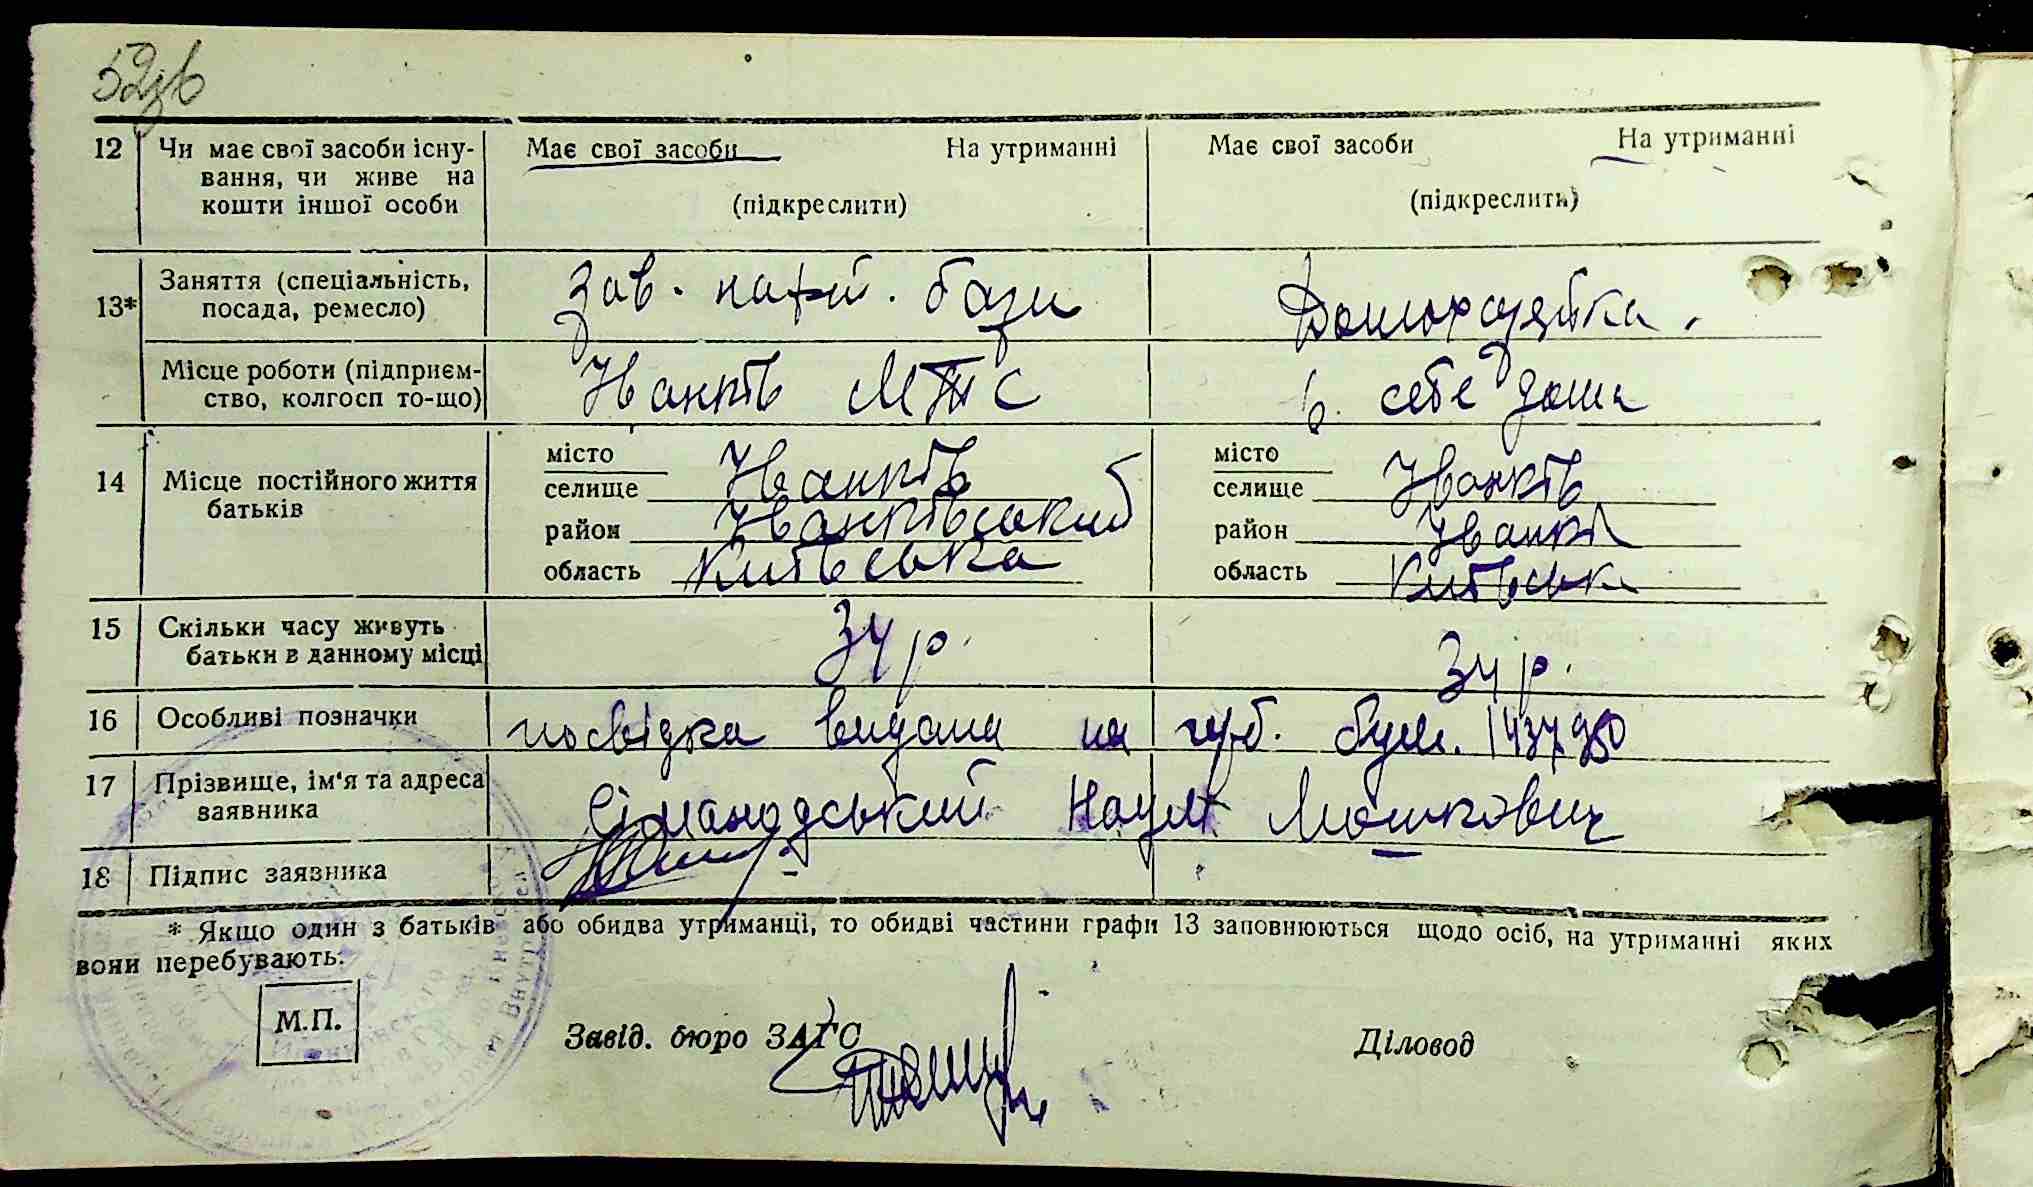 52зв
12 Чи має свої засоби існу- Має свої засоби На утриманні Має свої засоби На утриманні
вання, чи живе на
кошти іншої особи (підкреслити) (підкреслить)
13* Заняття (спеціальність, Зав. нафт. бази Домохазяйка.
посада, ремесло)
Місце роботи (підприєм- Іванків МТС в себе дома
ство, колгосп то-що)
14 Місце постійного життя місто Іванків місто Іванків
батьків селище селище
район Іванківський район Іванкі
область Київська область Київська
15 Скільки часу живуть 34 р. 34 р.
батьки в данному місці
16 Особливі позначки посвідка видана на герб. бум. 1437950
17 Прізвище, ім'я та адреса Сімановський Наум Мошкович
заявника
18 Підпис заявника
* Якщо один з батьків або обидва утриманці, то обидві частини графи 13 заповнюються щодо осіб, на утриманні яких
вони перебувають.
М.П. Завід. бюро ЗАГС Діловод